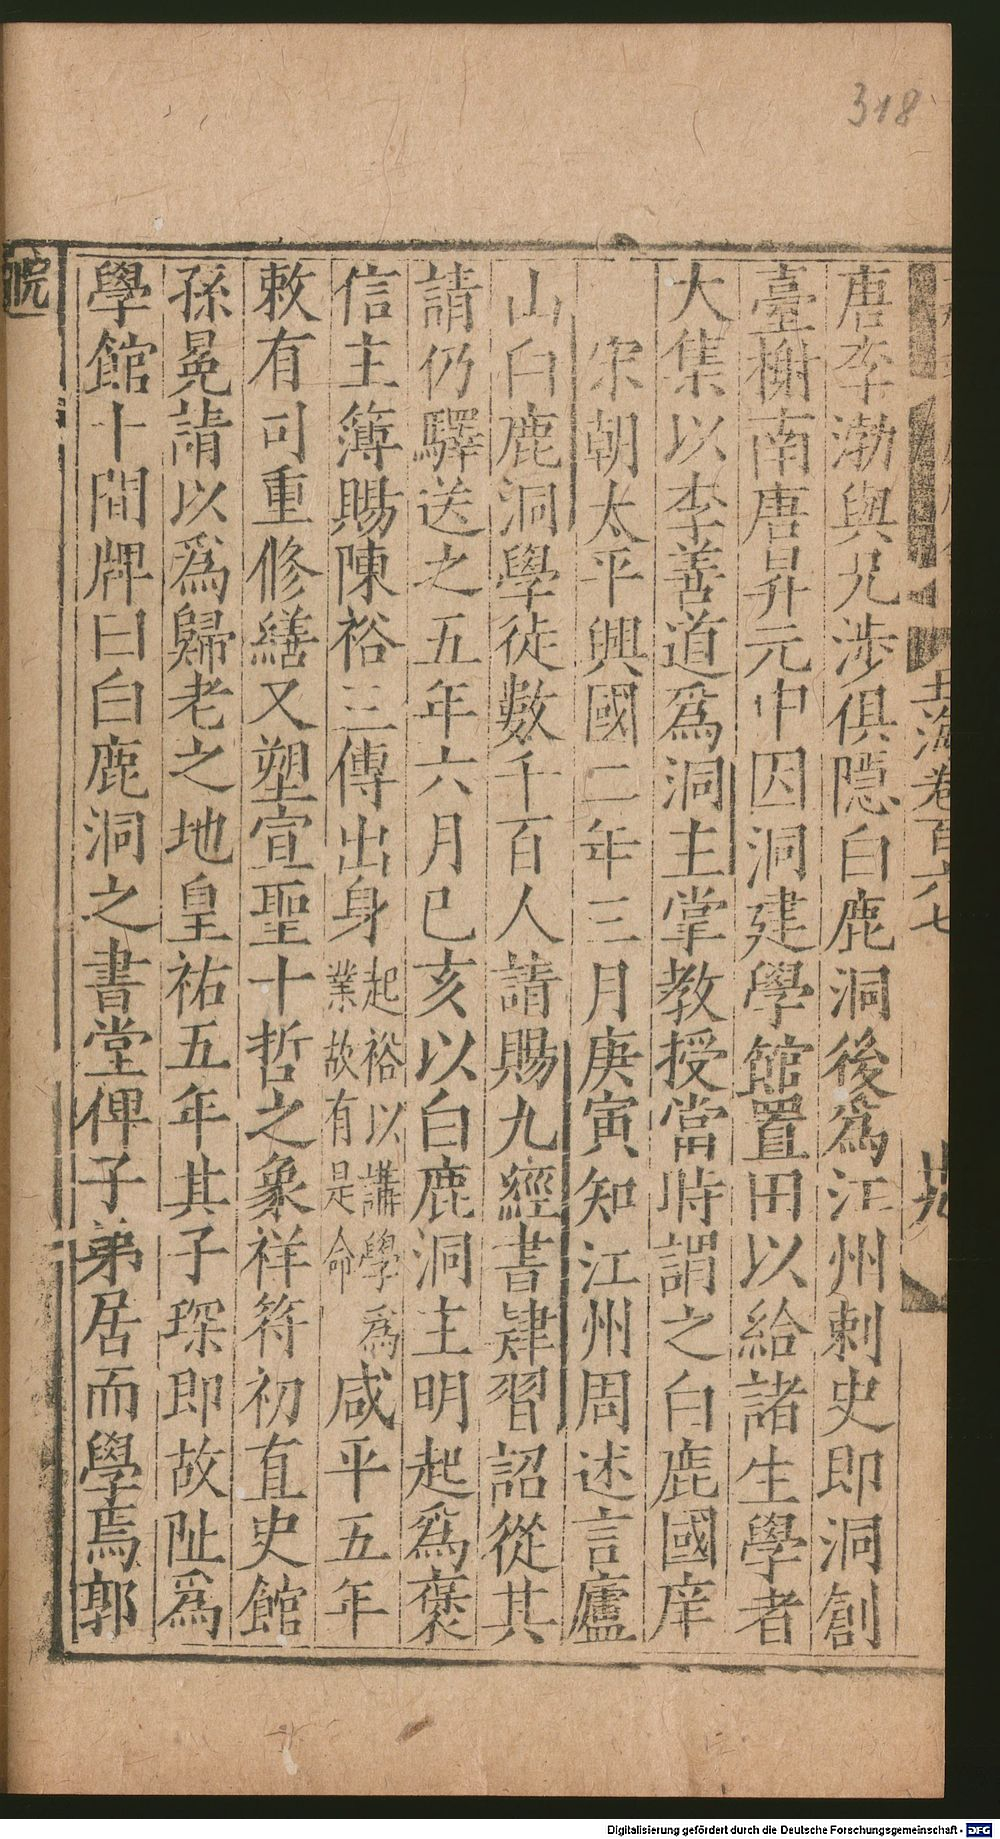 318
玉海卷百六七
唐李渤與兄涉俱隱白鹿洞後爲江州刺史即洞創
臺榭南唐昇元中因洞建學館置田以給諸生學者
大集以李善道爲洞主掌教授當時謂之白鹿國庠
宋朝太平興國二年三月庚寅知江州周述言廬
山白鹿洞學徒數千百人請賜九經書肄習詔從其
請仍驛送之五年六月己亥以白鹿洞主明起爲褒
信主簿賜陳裕三傳出身起裕以講學爲業故有是命咸平五年
敕有司重修繕又塑宣聖十哲之象祥符初直史館
孫冕請以爲歸老之地皇祐五年其子琛即故阯爲
學館十間牌曰白鹿洞之書堂俾子弟居而學焉郭
院
Digitalisierung gefördert durch die Deutsche Forschungsgemeinschaft - DFG